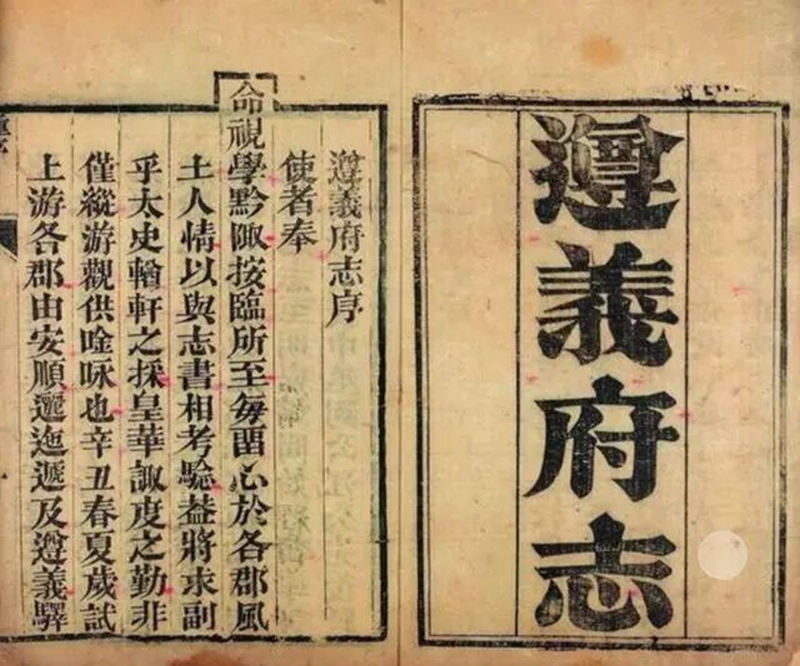 遵義府志
遵義府志序
使者奉
命視學黔陬按臨所至每畱心於各郡風
土人情以與志書相考騐葢將求副
乎太史輶軒之採皇華諏度之勤非
僅縱游觀供唫咏也辛丑春夏歲試
上游各郡由安順遷迤遞及遵義驛